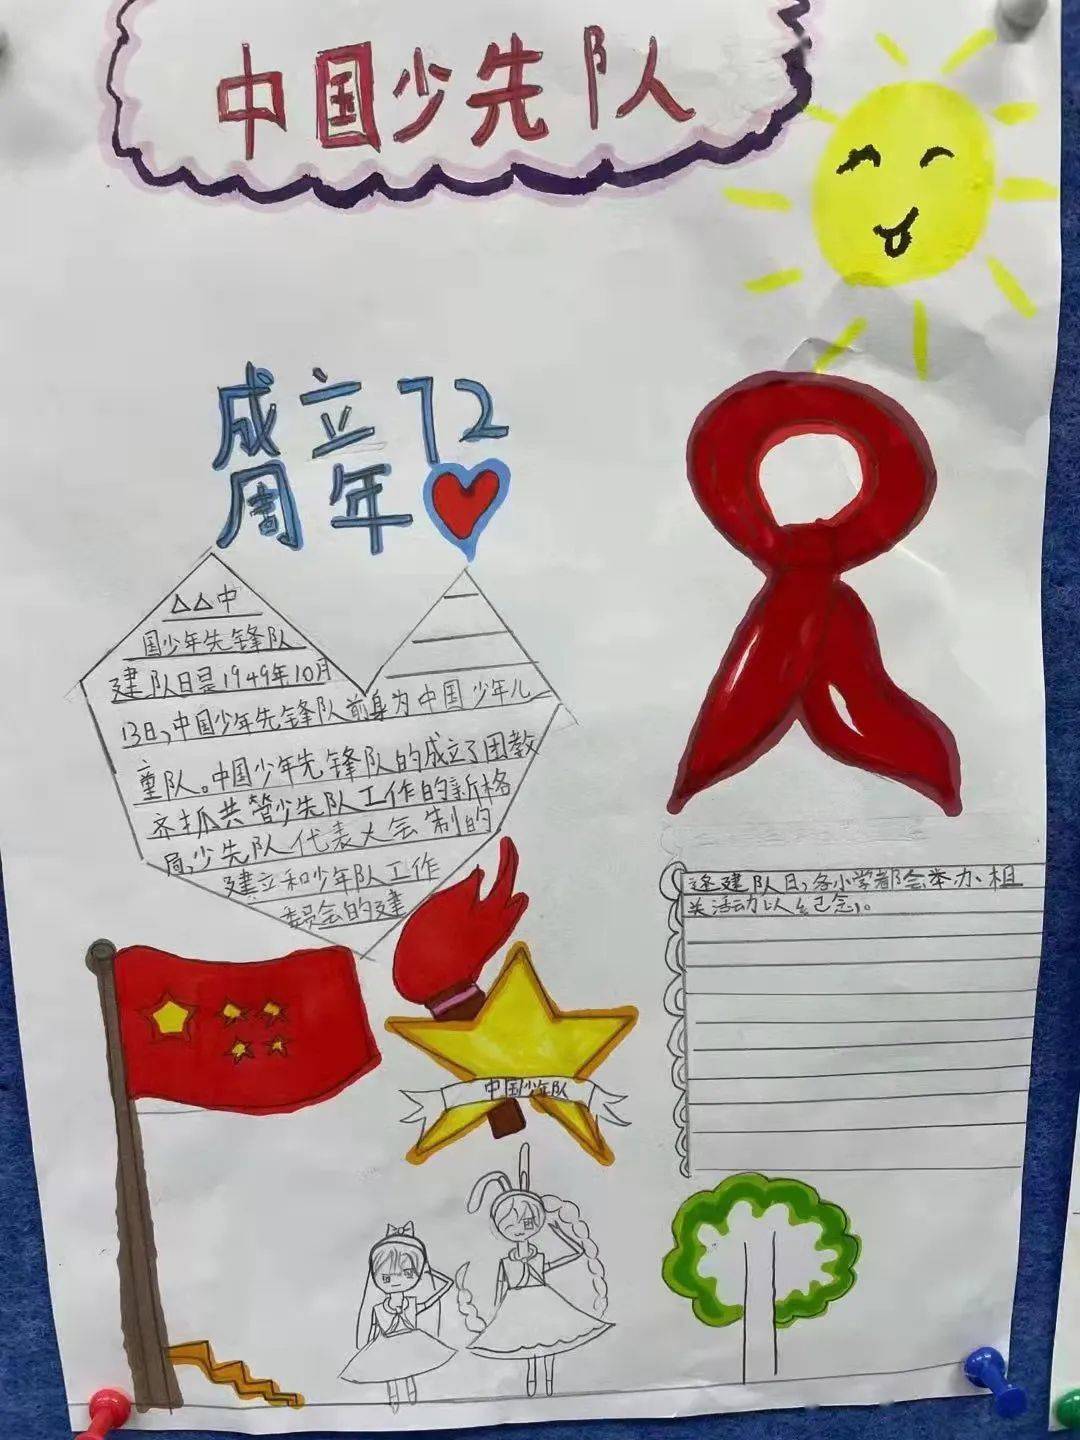 中国少先队
成立72
周年
△△中
国少年先锋队
建队日是1949年10月
13日,中国少年先锋队前身为中国少年儿
童队。中国少年先锋队的成立了团教
齐抓共管少先队工作的新格
局,少先队代表大会制的
建立和少年队工作
委员会的建
逢建队日,各小学都会举办相
关活动以纪念。
中国少年队